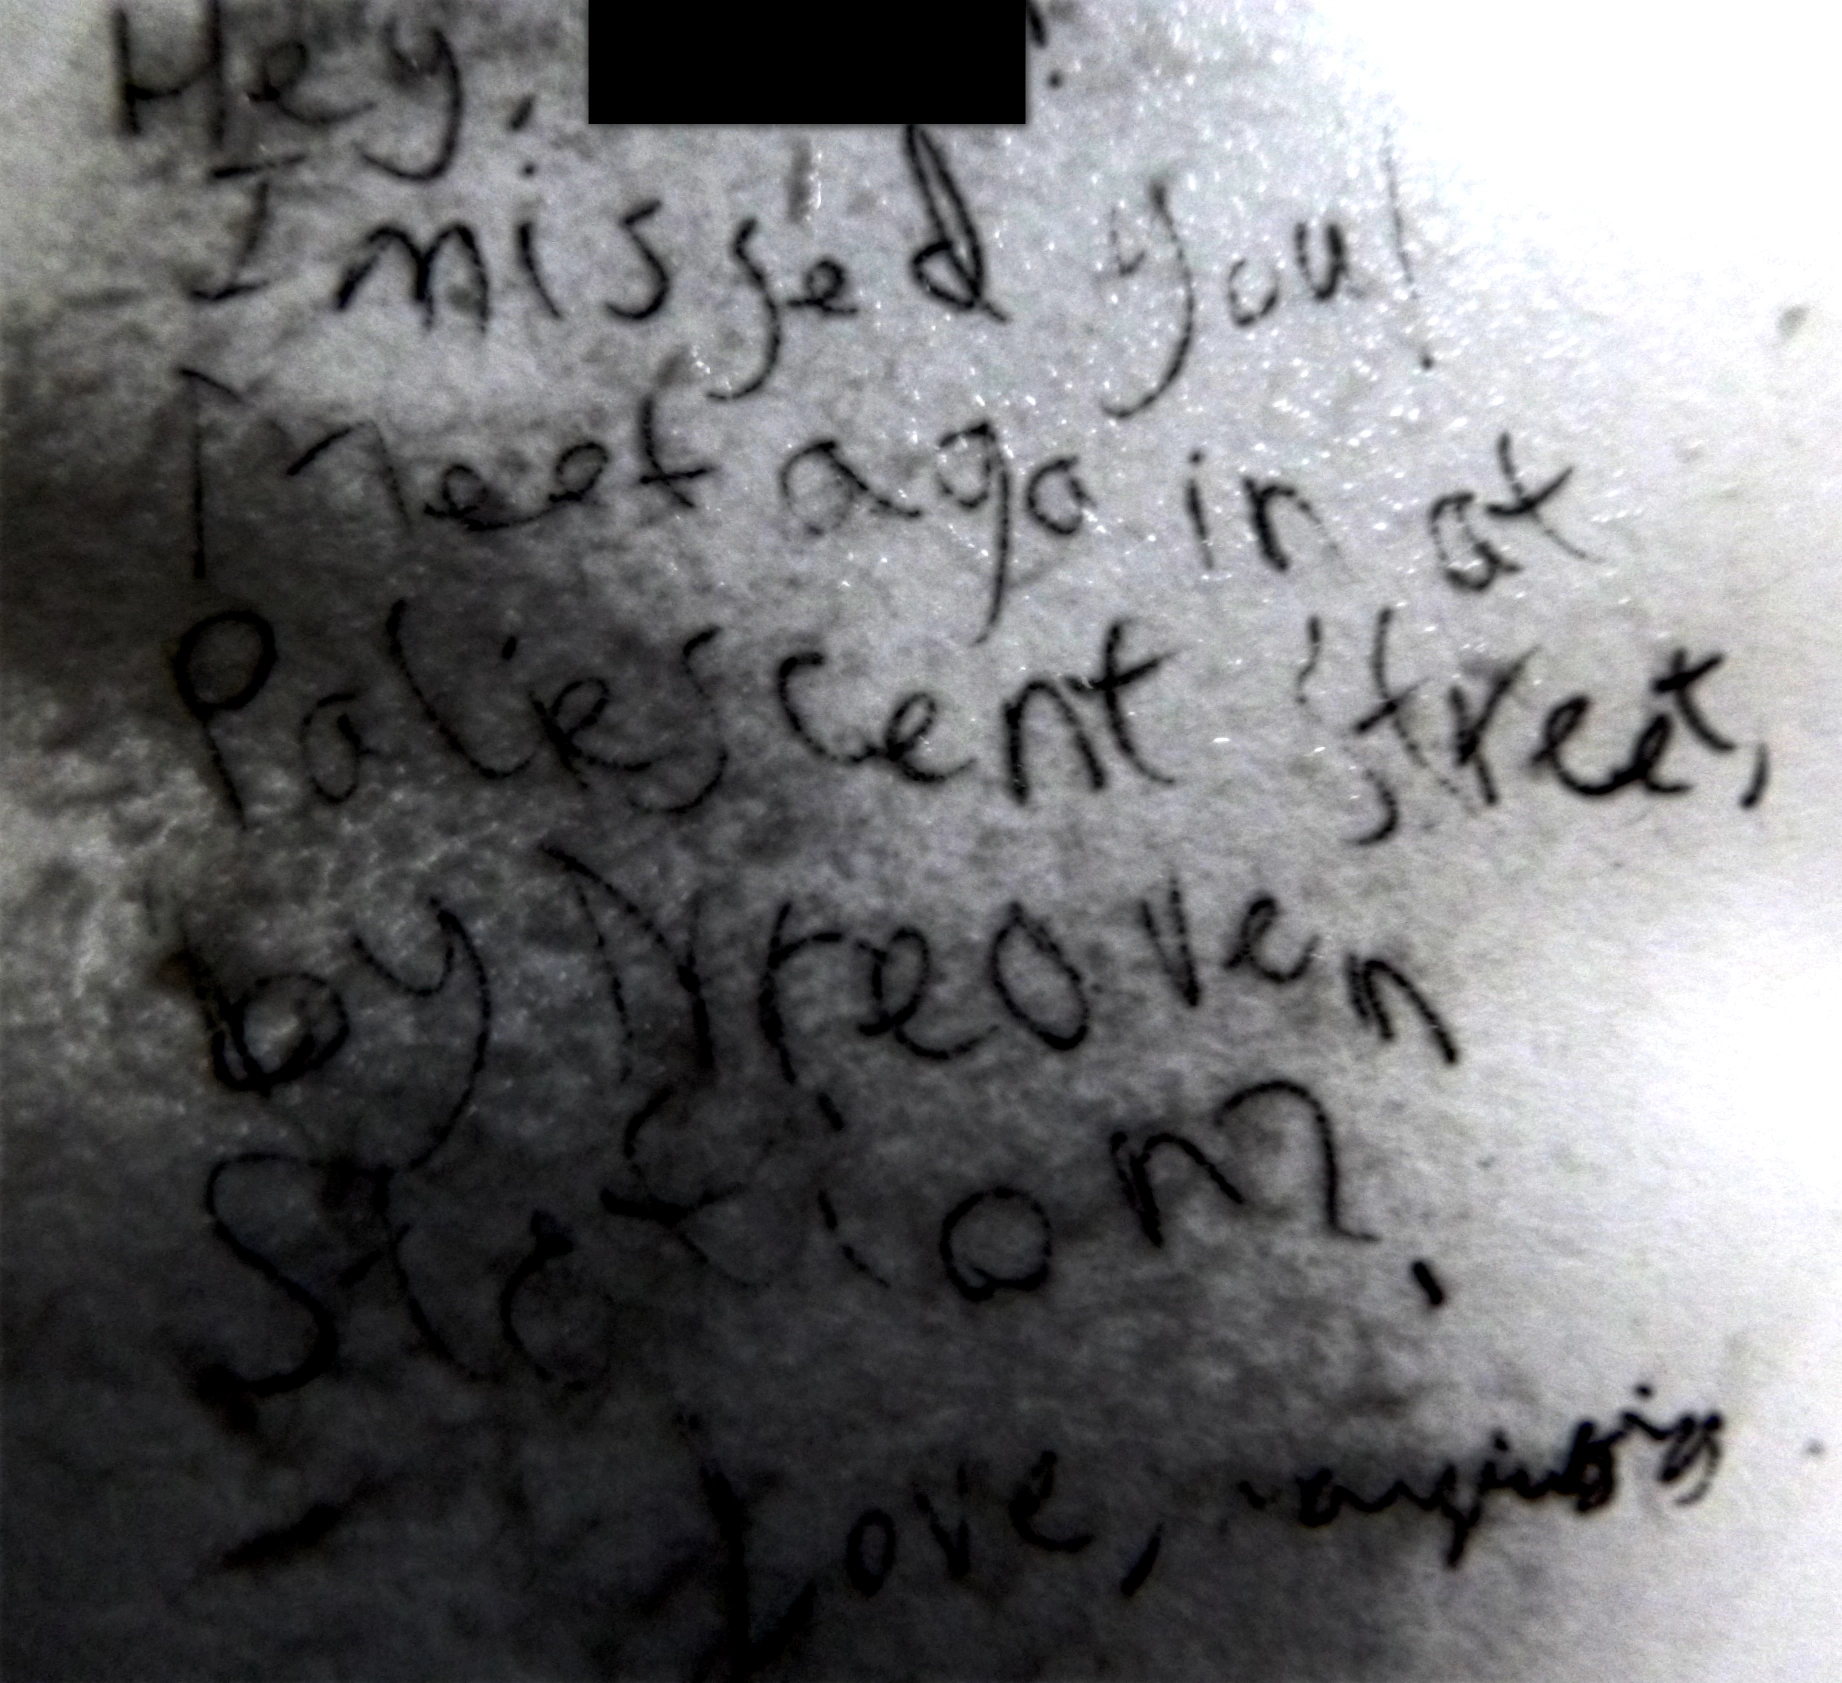 Hey,
I missed you!
Meet again at
Paliescent street,
by Nreoven
Station.
- Love,